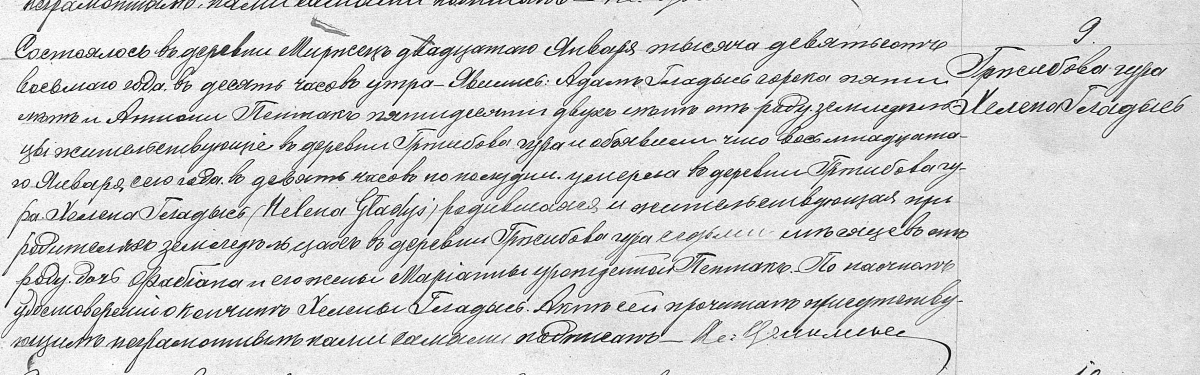 неграмотнымъ, нами самими подписанъ
9.
Гржибова гура
Хелена Гладысь
Состоялось въ деревни Миржецъ двадцатаго Января тысяча девятьсотъ
восьмаго года въ десять часовъ утра – Явились: Адамъ Гладысь сорока пяти
лѣтъ и Антони Пентакъ пятидесяти двухъ лѣтъ отъ роду земледѣль-
цы жительствующіе въ деревни Гржибова гура и объявили что восьмнадцата-
го Января сего года въ девять часовъ по полудни умерла въ деревни Гржибова гу-
ра Хелена Гладысь (Helena Gladyś) родившаяся и жительствующая при
родителяхъ земледѣльцахъ въ деревни Гржибова гура седьми мѣсяцевъ отъ
роду, дочь Фабіана и его жены Маріанны урожденной Пентакъ. По наочномъ
удостовереніи о кончинѣ Хелены Гладысь. Актъ сей прочитанъ присутству-
ющимъ неграмотнымъ нами самими подписанъ –
10